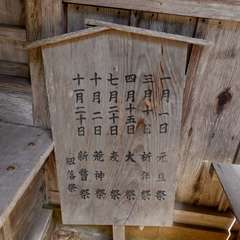 一月一日 元旦祭
三月十七 祈年祭
四月十五日 大祭
七月二十日 夜祭
十月二日 荒神祭
十一月二十日 新嘗祭
祭